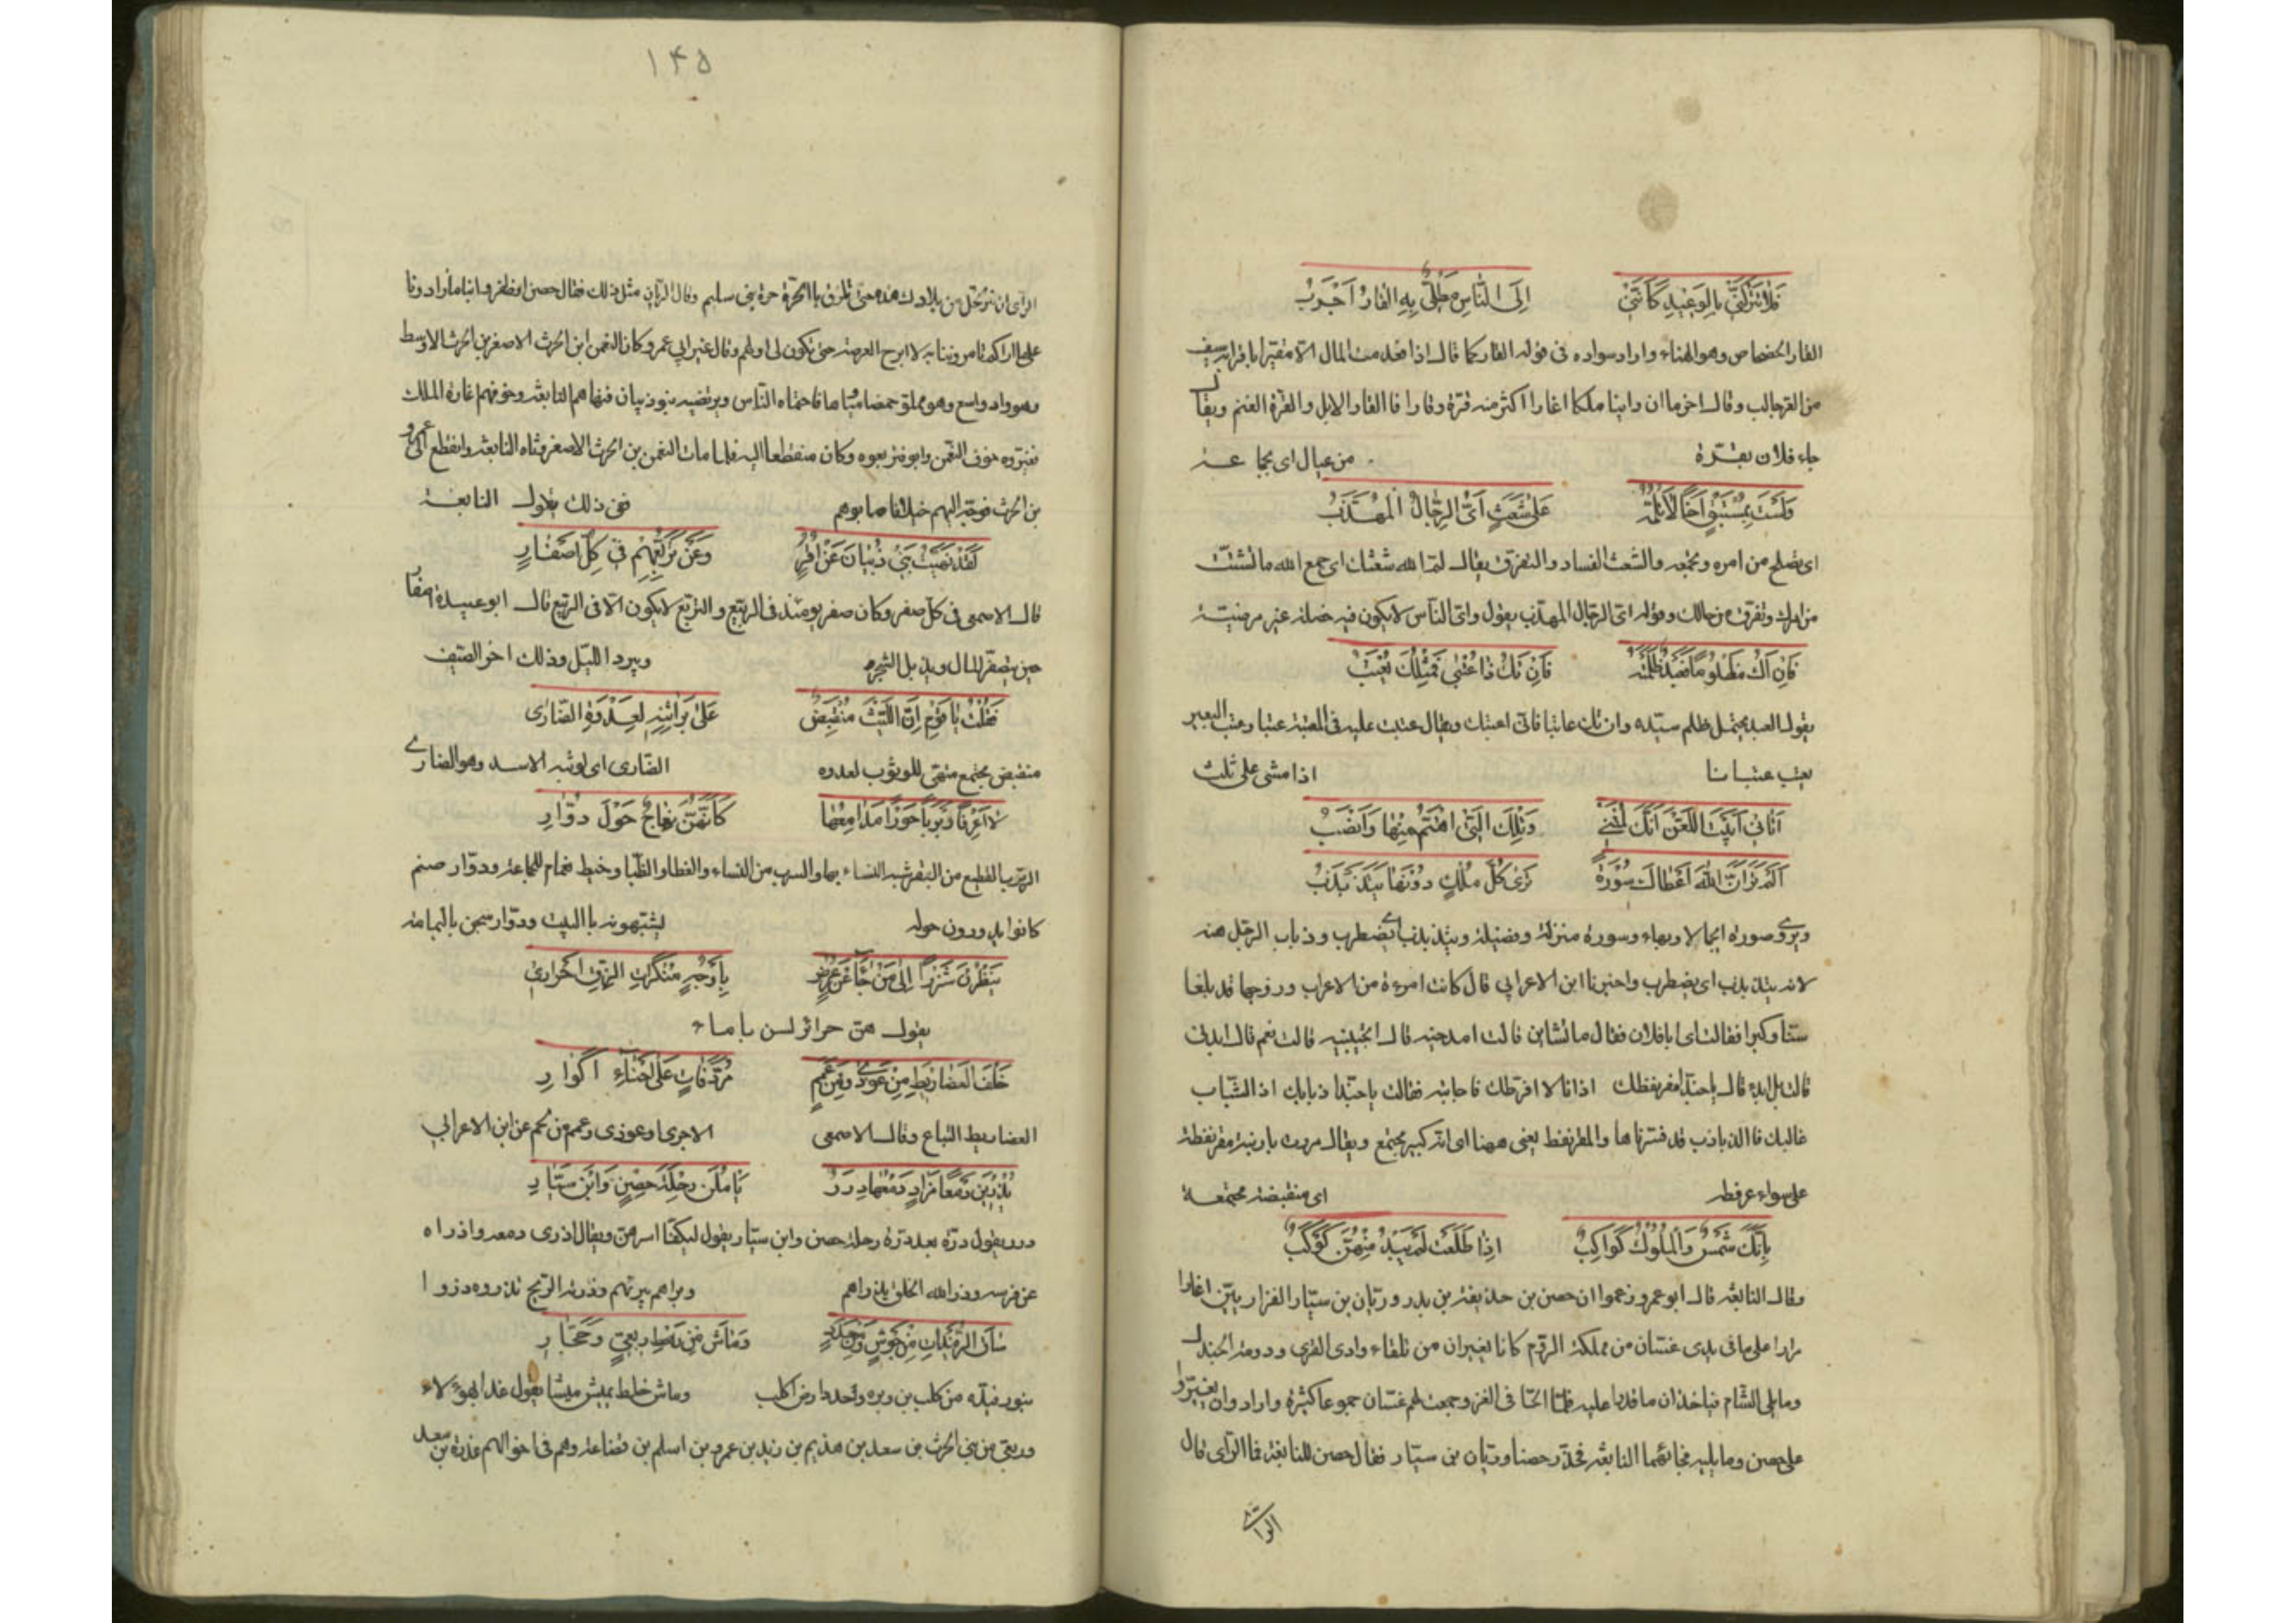 فلا تتركني بالوعيد كأنني إلى الناس مطليّ به القار أجرب
القار الخضخاض وهو الهناء واراد سواده في قوله القار كما قال
من القرحالب وقال اخر ما ان راينا ملكا اغارا اكثر منه قرة وقارا فالقار الابل والقرة الغنم ويقال
جاء فلان بقرة من عيال اى جماعة
ولست بمستبق أخا لا تلمّه على شعث أيّ الرجال المهذّب
اى تصلح من امره وتجمعه والشعث الفساد والتفرق يقال لمّ الله شعثك اى جمع الله ما تشتت
من امرك وتفرق من حالك وقوله اىّ الرجال المهذب يقول واىّ الناس لا يكون فيه خصلة غير مرضية
فإن أك مظلوما فعبد ظلمته فإن تك ذا عتبى فمثلك يعتب
يقول العبد يحتمل ظلم سيّده وان تك عاتبا فانّى اعتبك ويقال عتبت عليه فى المعتبة عتبا وعتب البعير
يعتب عتبانا اذا مشى على ثلث
أتاني أبيت اللعن أنّك لمتني وتلك التي أهتمّ منها وأنصب
ألم تر أنّ الله أعطاك سورة ترى كلّ ملك دونها يتذبذب
ويروى صورة اى جمالا وبهاء وسورة منزلة وفضيلة ويتذبذب اى يضطرب وذباب الرجل منه
لانه يتذبذب اى يضطرب واخبرنا ابن الاعرابي قال كانت امرءة من الاعراب وزوجها قد بلغا
سنّا وكبرا فقالت اى با فلان فقال ما تشاين قالت
غالبك فالذباذب قد فسّرناها والمقرنفط يعنى ههنا اى انه كبير مجتمع ويقال مررت بارنبة مقرنفطة
على سواء عرفطه اى منقبضة مجتمعة
بأنّك شمس والملوك كواكب إذا طلعت لم يبد منهنّ كوكب
وقال النابغة قال ابو عمرو زعموا ان حصن بن حذيفة بن بدر وزبّان بن سيّار الفزاريين اغارا
مرارا على ما فى يدى غسّان من مملكة الروم كانا يغيران من تلقاء وادى القرى ودومة الجندل
وما يلى الشام فياخذان ما قدرا عليه فلمّا الحّا فى الغزو جمعت لهم غسّان جموعا كثيرة وارادوا ان يغيروا
على حصن وما يليه فجائهما النابغة فحذّر حصنا وزبّان بن سيّار فقال حصن للنابغة فما الراى قال
الراى
۱۴۵
الراى ان ترتحل من بلادك هذه حتى تلزق بالحرّة حرة بنى سليم وقال الزبان مثل ذلك فقال حصن
على لا ابرح العرصة حتى تكون لى اولهم وقال غير ابى عمرو كان النعمن ابن الحرث الاصغر بن الحرث الاوسط
وهو واد واسع وهو مملو حمضا ومياها فاحتماه الناس وتربّعته بنو ذبيان فنهاهم النابغة وخوفهم غارة الملك
وكان منقطعا اليه فلما مات النعمن بن الحرث الاصغر رثاه النابغة وانقطع الى عمرو
بن الحرث فوجّه اليهم خيلا فاصابوهم ففى ذلك يقول النابغة
لقد نهيت بني ذبيان عن أقر وعن تربّعهم في كلّ أصفار
قال الاصمعى فى كل صفر وكان صفر يومئذ فى الربيع والتربع لا يكون الا فى الربيع قال ابو عبيدة اصفار
حين يتصفّر المال ويذبل الشجر ويبرد الليل وذلك اخر الصيف
فقلت يا قوم إنّ الليث منقبض على براثنه لعدوة الضّاري
منقبض مجتمع متهيّئ للوثوب لعدوه الضارى اى لوثبة الاسد وهو الضارى
لا أعرفن ربربا حورا مدامعها كأنّهنّ نعاج حول دوّار
الربرب القطيع من البقر شبه النساء بها والسرب من النساء والقطا والظبا وخيط نعام للجماعة ودوّار صنم
كانوا يدورون حوله يشبّهونه بالبيت ودوّار سجن باليمامة
ينظرن شزرا إلى من جاء عن عرض بأوجه منكرات الرّقّ أحرار
يقول هنّ حرائر لسن باماء
خلف العضاريط من عوذى ومن عمم مردّفات على أحناء أكوار
العضاريط التباع وقال الاصمعى الاجرى وعوذى وعمم من لخم عن ابن الاعرابي
يذرين دمعا مزار دمعها درر يأملن رحلة حصن وابن سيّار
درر يقول درّة بعد درّة رحلة حصن وابن سيّار يقول ليكفّا اسرهن ويقال اذرى دمعه واذراه
عن فرسه وذرا الله الخلق يذراهم وبراهم يبرئهم وذرته الريح تذروه ذروا
ساق الرفيدات من جوش ومن حدد وماش من رهط ربعيّ وحجّار
بنو رفيده من كلب بن وبره وحدد ارض لكلب وماش خلط يميش ميشا يقول غدا بهؤلاء
وربعىّ من بنى الحرث بن سعد بن هذيم بن زيد بن عمرو بن اسلم بن قضاعة وهم فى اخوالهم عذرة بن سعد